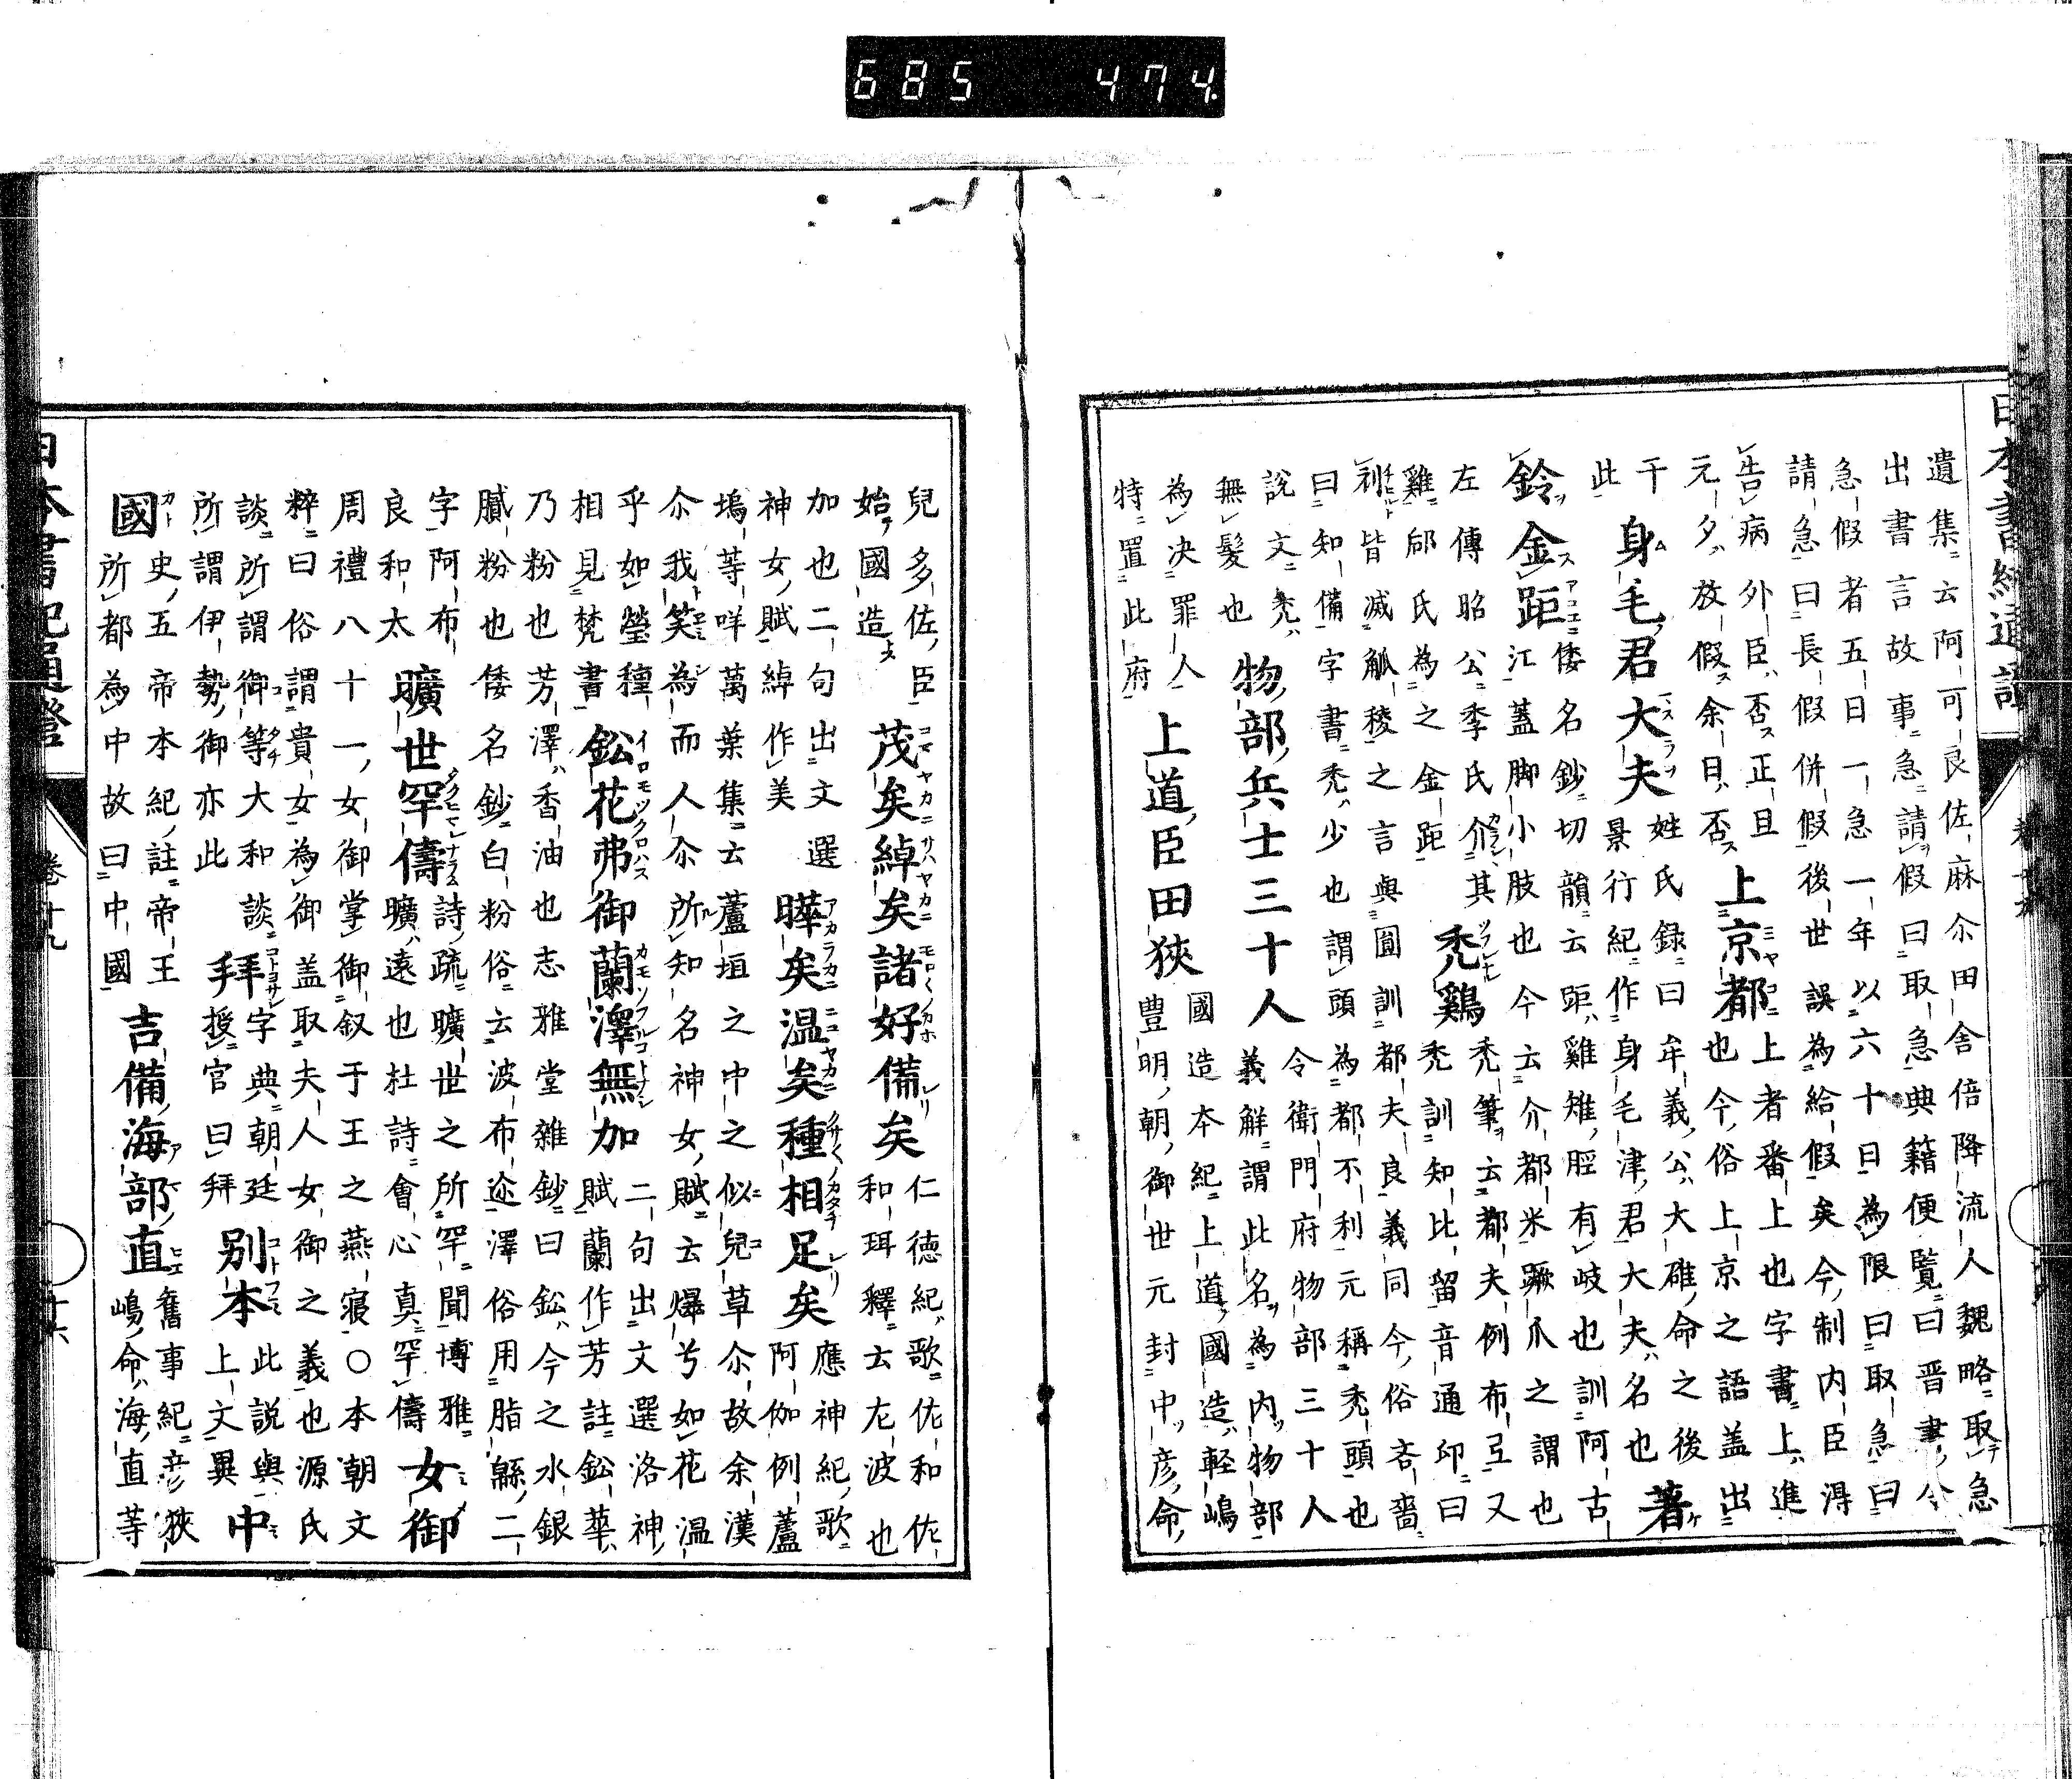 685 474
遺集云阿可良佐麻尒田舎倍降流人魏略取急
出書言故事急請假曰取急典籍便覧曰晋書令
急假者五日一急一年以六十日為限曰取急曰
請急曰長假併假後世誤為給假矣今制内臣得
告病外臣否正且
元夕放假余日否
上京都
上者番上也字書上進
也今俗上京之語盖出
干
此
身毛君大夫
姓氏録曰牟義公大碓命之後
景行紀作身毛津君大夫名也
著
鈴金距
倭名鈔切韻云距雞雉脛有岐也訓阿古
江蓋脚小肢也今云介都米蹶爪之謂也
左傳昭公季氏介其
雞郈氏為之金距
禿鷄
禿筆云都夫例布弖又
禿訓知比留音通印曰
刹皆滅觚稜之言與圓訓都夫良義同今俗吝嗇
曰知備字書禿少也謂頭為都不利元稱禿頭也
説文禿
無髮也
物部兵士三十人
令衛門府物部三十人
義解謂此名為内物部
為决罪人
特置此府
上道臣田狹
國造本紀上道國造軽嶋
豊明朝御世元封中彦命
兒多佐臣
始國造
茂矣綽矣諸好備矣
仁徳紀歌佐和佐
和珥釋云左波也
加也二句出文選
神女賦綽作美
曄矣温矣種相足矣
應神紀歌
阿伽例蘆
塢等咩萬葉集云蘆垣之中之似兒草尒故余漢
尒我笑為而人尒所知名神女賦云爆兮如花温
乎如瑩種
相見梵書
鈆花弗御蘭澤無加
二句出文選洛神
賦蘭作芳註鈆華
乃粉也芳澤香油也志雅堂雜鈔曰鈆今之水銀
膩粉也倭名鈔白粉俗云波布迩澤俗用脂緜二
字阿布
良和太
曠世罕儔
詩疏曠世之所罕聞博雅
曠遠也杜詩會心真罕儔
女御
周禮八十一女御掌御叙于王之燕寝○本朝文
粹曰俗謂貴女為御盖取夫人女御之義也源氏
談所謂御等大和談
所謂伊勢御亦此
拜
字典朝廷
授官曰拜
別本
此説與
上文異
中
國
史五帝本紀註帝王
所都為中故曰中國
吉備海部直
舊事紀吉狹
嶋命海直等
日本書紀通證
卷十九
十六